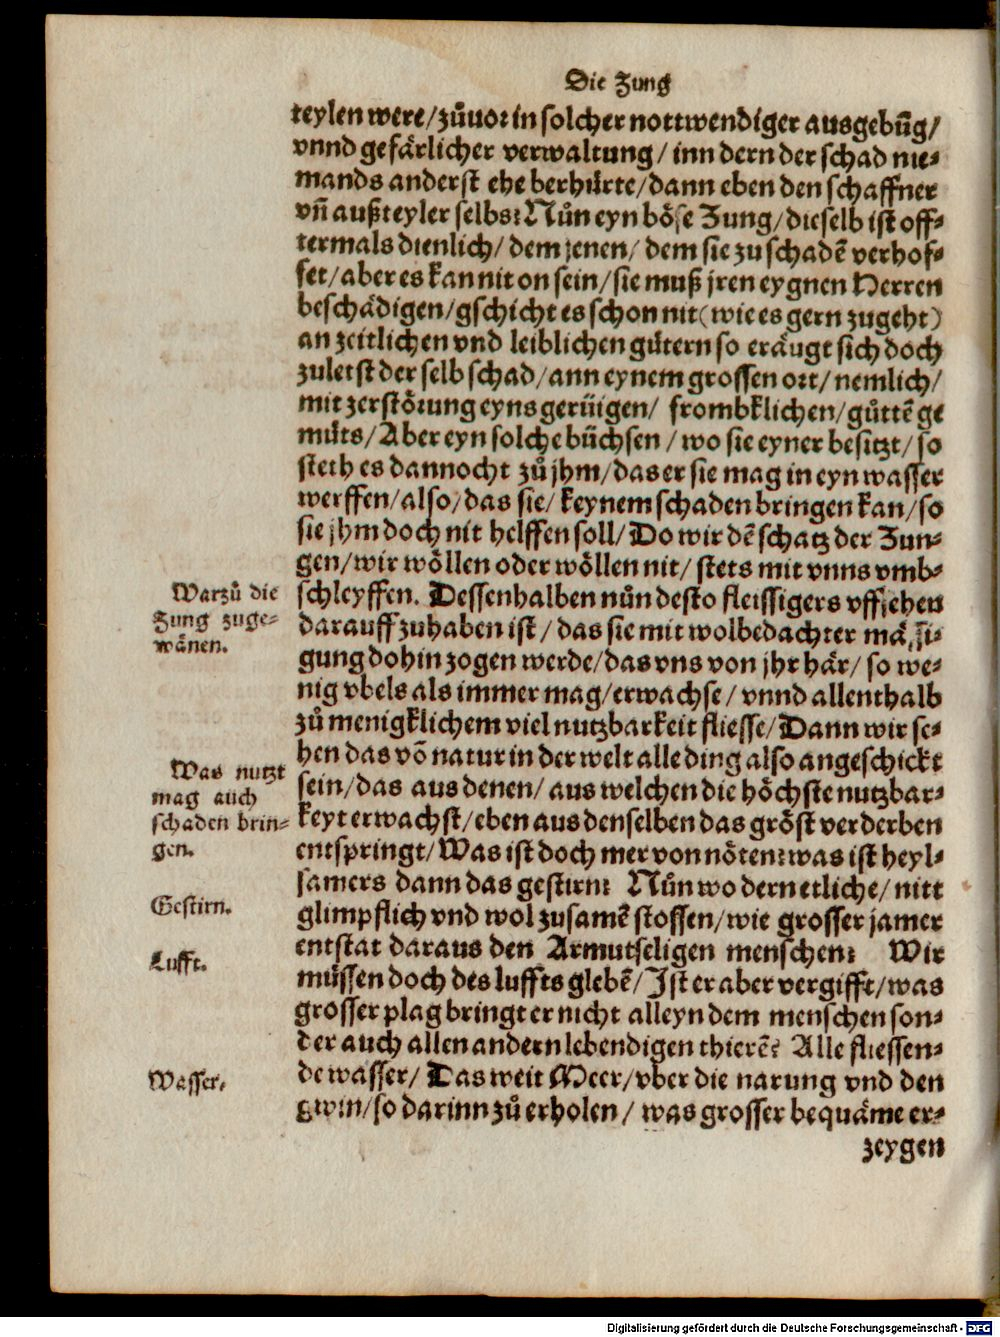 Die Zung
teylen were/ zůuor in solcher nottwendiger ausgebũg/
vnnd gefärlicher verwaltung/ inn dern der schad nie-
mands anderst ehe berhürte/ dann eben den schaffner
vñ außteyler selbs? Nůn eyn böse Zung/ dieselb ist off-
termals dienlich/ dem jenen/ dem sie zu schadẽ verhof-
fet/ aber es kan nit on sein/ sie muß jren eygnen Herren
beschädigen/ gschicht es schon nit (wie es gern zugeht)
an zeitlichen vnd leiblichen gütern so eräugt sich doch
zuletst der selb schad/ ann eynem grossen ort/ nemlich/
mit zerstörung eyns gerüigen/ frombklichen/ gůttẽ ge
müts/ Aber eyn solche büchsen/ wo sie eyner besitzt/ so
steth es dannocht zů jhm/ das er sie mag in eyn wasser
werffen/ also/ das sie/ keynem schaden bringen kan/ so
sie jhm doch nit helffen soll/ Do wir dẽ schatz der Zun-
gen/ wir wöllen oder wöllen nit/ stets mit vnns vmb-
schleyffen. Dessenhalben nůn desto fleissigers vffsehen
darauff zuhaben ist/ das sie mit wolbedachter mässi-
gung dohin zogen werde/ das vns von jhr här/ so we-
nig vbels als immer mag/ erwachse/ vnnd allenthalb
zů menigklichem viel nutzbarkeit fliesse/ Dann wir se-
hen das võ natur in der welt alle ding also angeschickt
sein/ das aus denen/ aus welchen die höchste nutzbar-
keyt erwachst/ eben aus denselben das gröst verderben
entspringt/ Was ist doch mer von nöten? was ist heyl-
samers dann das gestirn? Nůn wo dern etliche/ nitt
glimpflich vnd wol zusamẽ stossen/ wie grosser jamer
entstat daraus den Armutseligen menschen? Wir
müssen doch des luffts glebẽ/ Ist er aber vergifft/ was
grosser plag bringt er nicht alleyn dem menschen son-
der auch allen andern lebendigen thierẽ? Alle fliessen-
de wasser/ Das weit Meer/ vber die narung vnd den
gwin/ so darinn zů erholen/ was grosser bequäme er-
zeygen
Warzů die
Zung zuge-
wänen.
Was nutzt
mag auch
schaden brin-
gen.
Gestirn.
Lufft.
Wasser.
Digitalisierung gefördert durch die Deutsche Forschungsgemeinschaft - DFG